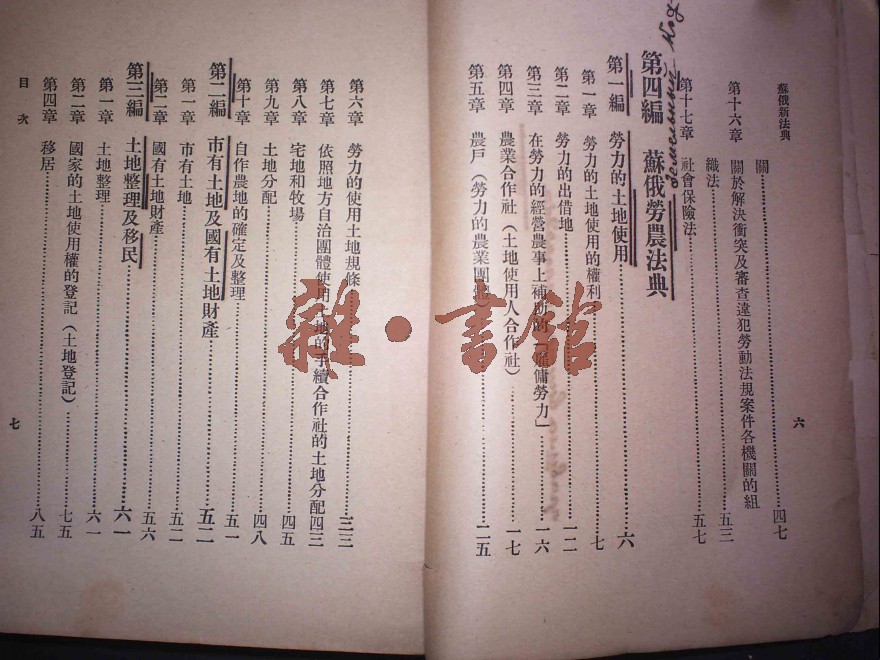 蘇俄新法典
六
關……四七
第十六章 關於解決衝突及審查違犯勞動法規案件各機關的組
織法……五三
第十七章 社會保險法……五七
第四編 蘇俄勞農法典
第一編 勞力的土地使用……六
第一章 勞力的土地使用的權利……七
第二章 勞力的出借地……一二
第三章 在勞力的經營農事上補助的「雇傭勞力」……一六
第四章 農業合作社（土地使用人合作社）……一七
第五章 農戶（勞力的農業團體）……二五
第六章 勞力的使用土地規條……三三
第七章 依照地方自治團體使用土地的手續合作社的土地分配四三
第八章 宅地和牧場……四五
第九章 土地分配……四八
第十章 自作農地的確定及整理……五一
第二編 市有土地及國有土地財產……五二
第一章 市有土地……五二
第二章 國有土地財產……五六
第三編 土地整理及移民……六一
第一章 土地整理……六一
第二章 國家的土地使用權的登記（土地登記）……七五
第四章 移居……八五
目次
七
雜·書館